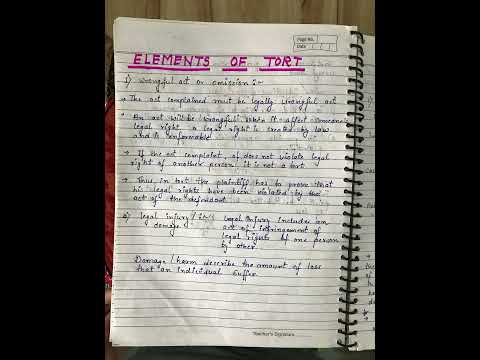 Page No.
Date
ELEMENTS OF TORT
1) Wrongful act or omission :-
→ The act complained must be legally wrongful act
→ An act will be wrongful when it affect someone's
legal right, a legal right is created by law
and is
→ If the act complaint, of does not violate legal
right of another person it is not a tort
→ Thus, in tort the plaintiff has to prove that
his legal rights have been violated by the
act of the defendant
2) legal injury / legal injury includes an
damage act of infringement of
legal rights of one person
by other.
Damage / harm describe the amount of loss
that an individual suffer
Teacher's Signature